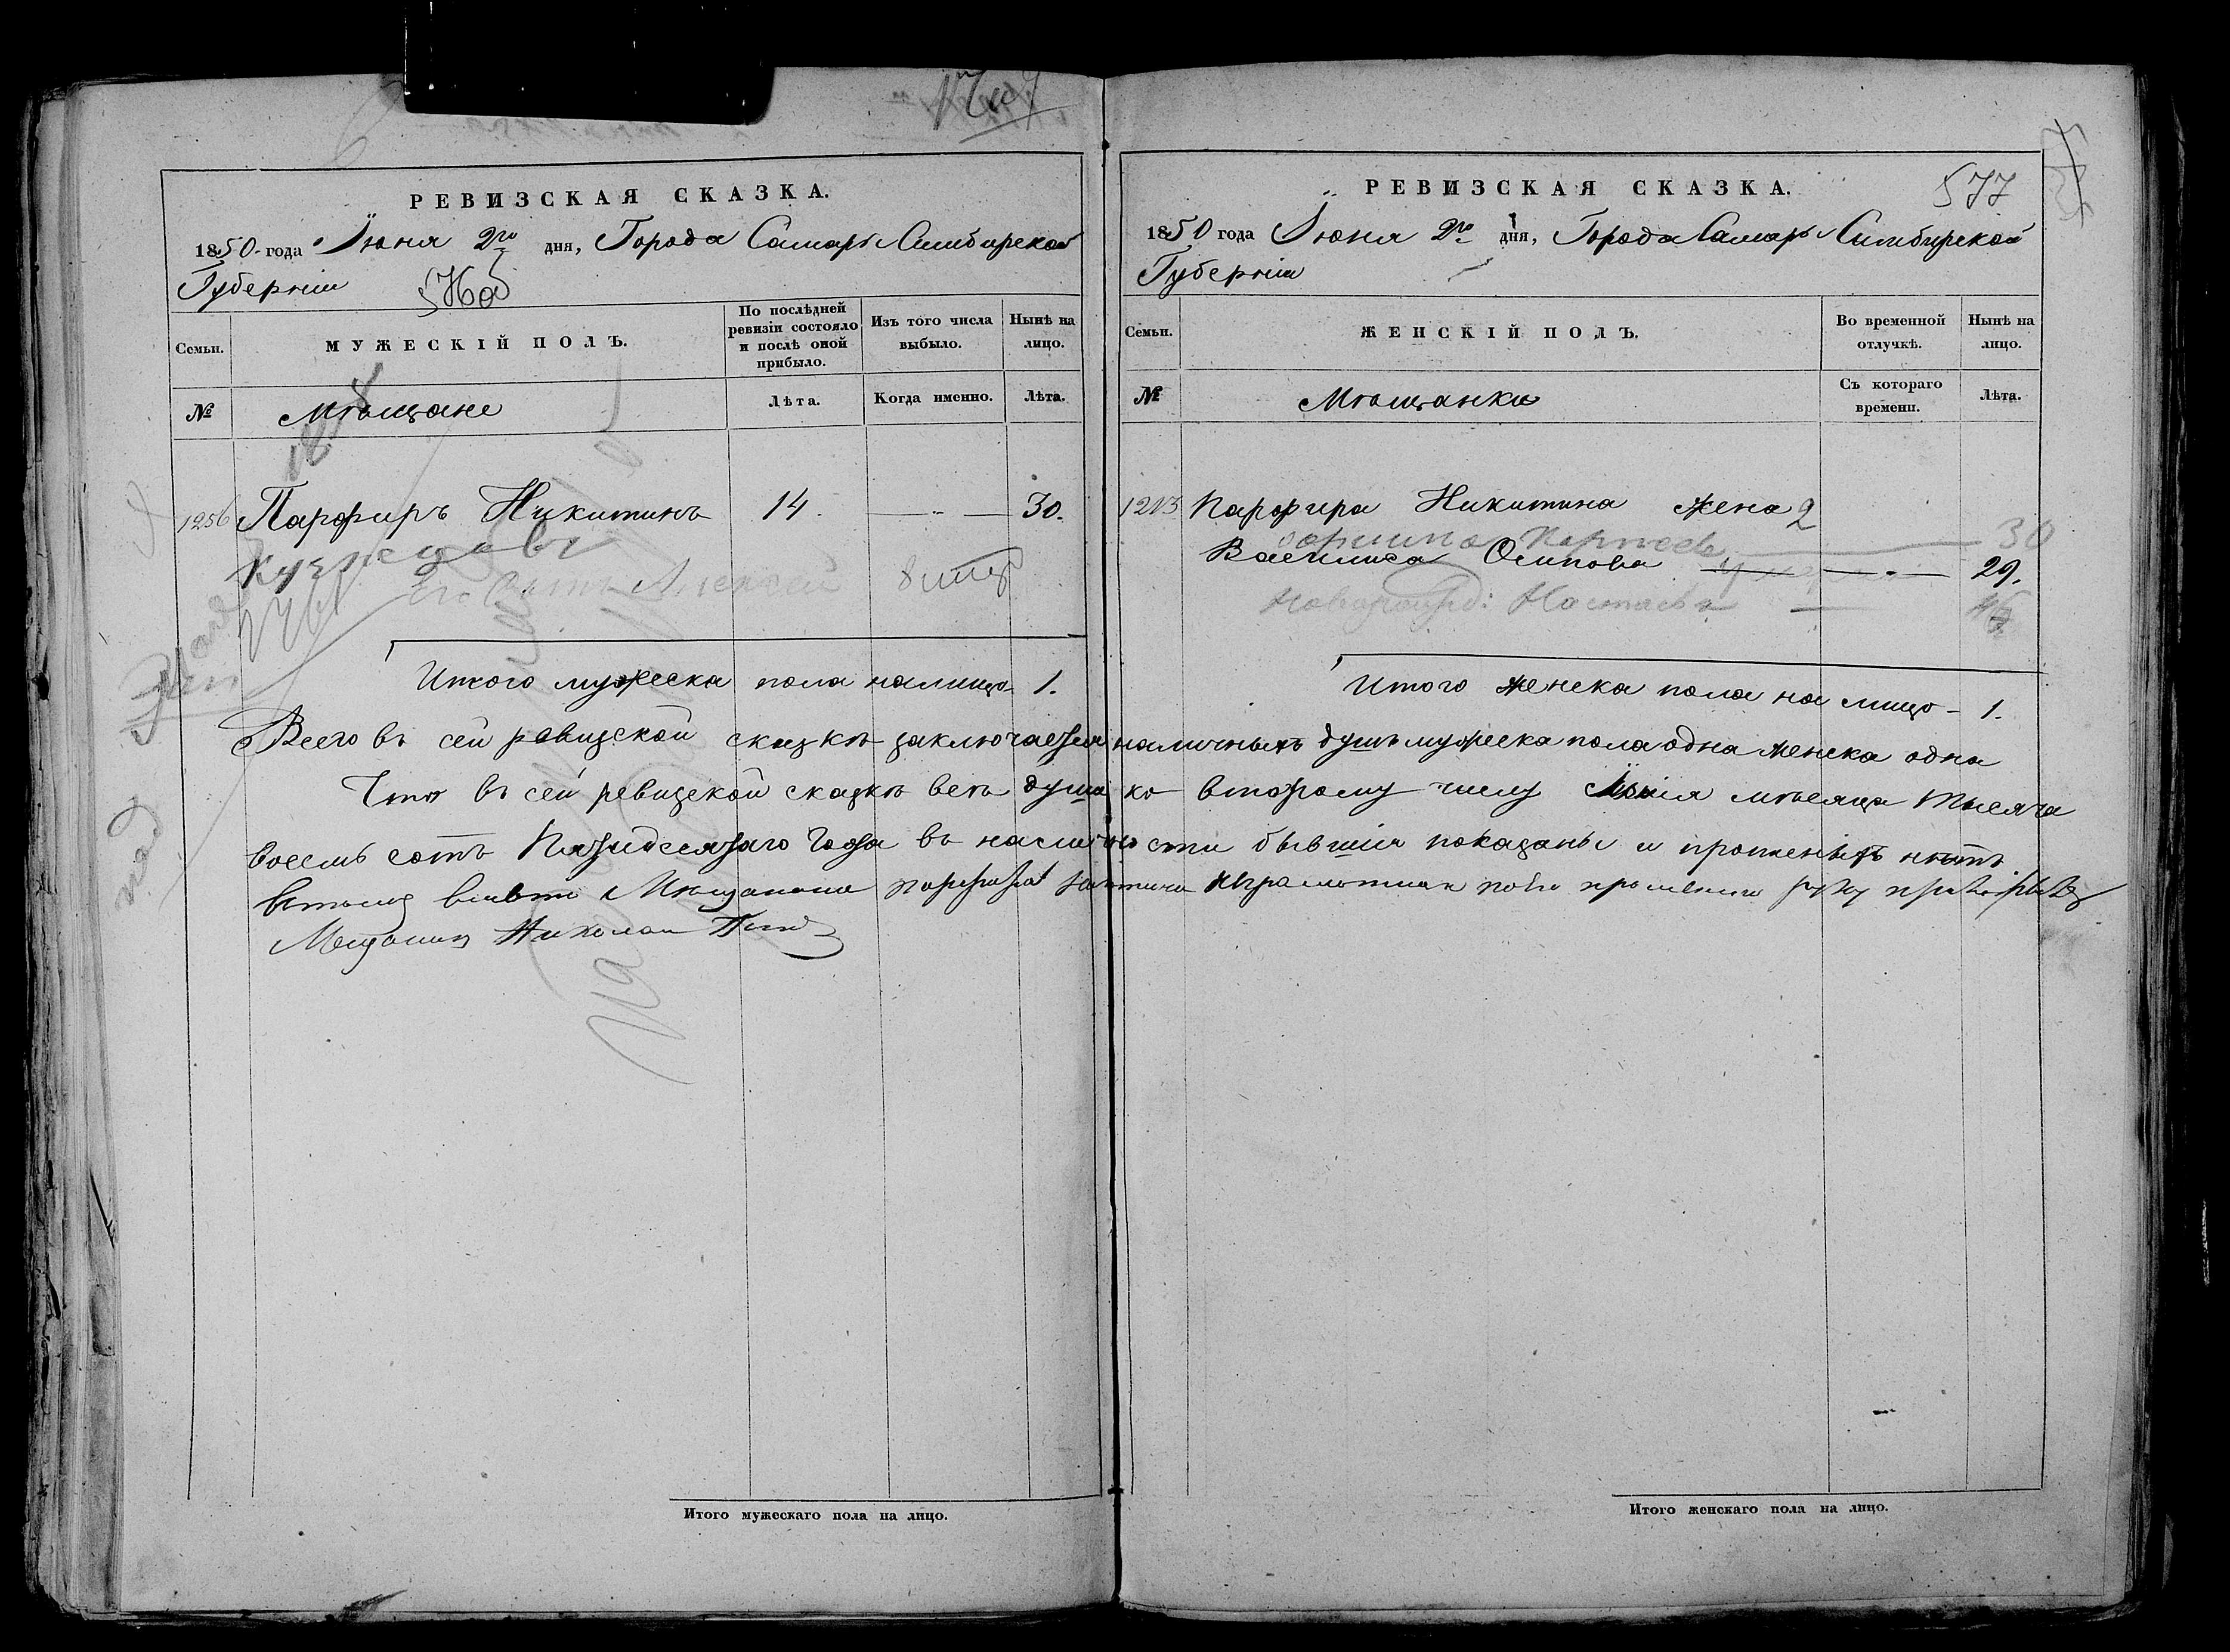 РЕВИЗСКАЯ СКАЗКА.
1850 года Июня 2го дня, Города Самары Симбирской
Губернiи
576об
Семьи.
МУЖЕСКIЙ ПОЛЪ.
По послѣдней ревизiи состояло и послѣ оной прибыло.
Изъ того числа выбыло.
Нынѣ на лицо.
№
Мѣщане
Лѣта.
Когда именно.
Лѣта.
1256 Парфиръ Никитинъ 14. 30.
Кузнецовъ
Его Сынъ Алексей
Итого мужеска пола налицо 1.
РЕВИЗСКАЯ СКАЗКА.
577
1850 года Июня 2го дня, Города Самары Симбирской
Губернiи
Семьи.
ЖЕНСКIЙ ПОЛЪ.
Во временной отлучкѣ.
Нынѣ на лицо.
№
Мѣщанки
Съ котораго времени.
Лѣта.
1213 Парфира Никитина жена 2
30
Василиса Осипова 29.
Итого женска пола на лицо - 1.
Всего въ сей ревизской сказкѣ заключается наличныхъ душъ мужеска пола одна женска одна
Что въ сей ревизской сказкѣ всѣ души ко второму числу Iюня мѣсяца тысяча
восемь сотъ Пятидесятаго Года въ наличности бывшiя показаны и прописныхъ нѣтъ
Мещанин Николай
Итого мужескаго пола на лицо.
Итого женскаго пола на лицо.